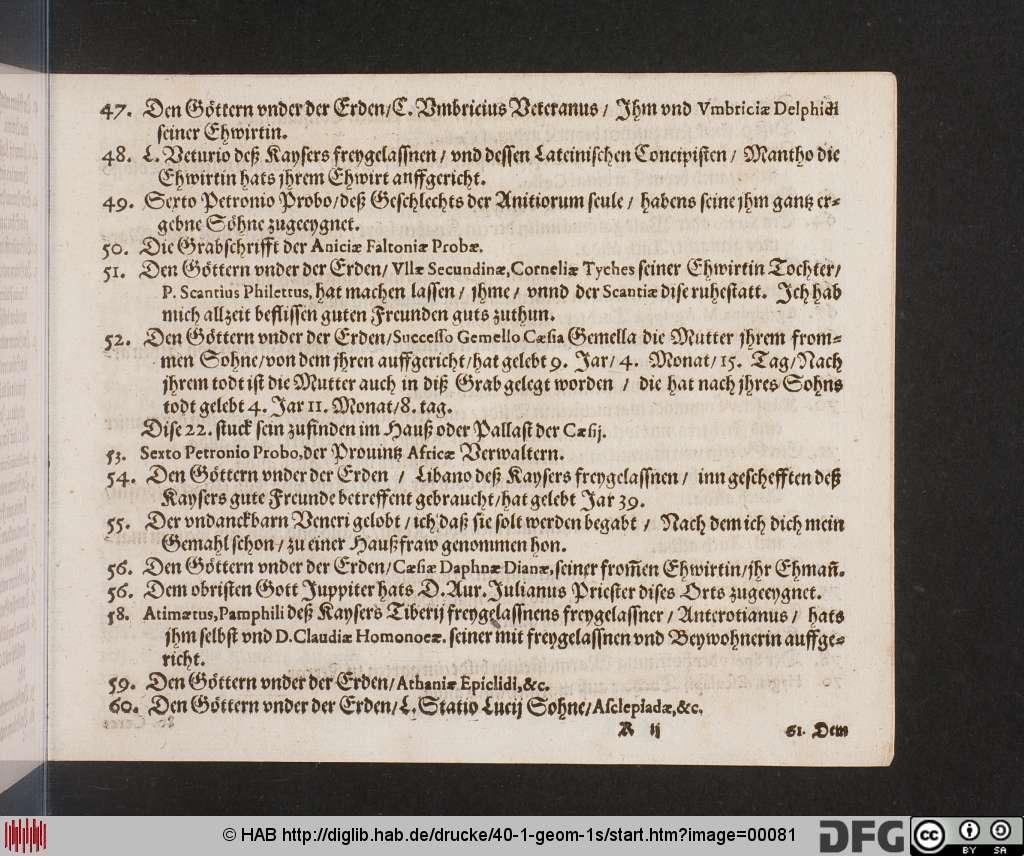 47. Den Göttern vnder der Erden/C. Vmbricius Veteranus/ Ihm vnd Vmbriciæ Delphidi
seiner Ehwirtin.
48. L. Veturio deß Kaysers freygelaßnen/ vnd dessen Lateinischen Concipisten/ Mantho die
Ehwirtin hats jhrem Ehwirt auffgericht.
49. Sexto Petronio Probo/deß Geschlechts der Anitiorum seule/ habens seine jhm gantz er-
gebne Söhne zugeeygnet.
50. Die Grabschrifft der Aniciæ Faltoniæ Probæ.
51. Den Göttern vnder der Erden/ Vllæ Secundinæ, Corneliæ Tyches seiner Ehwirtin Tochter/
P. Scantius Philettus, hat machen lassen/ jhme/ vnnd der Scantiæ dise ruhestatt. Ich hab
mich allzeit beflissen guten Freunden guts zuthun.
52. Den Göttern vnder der Erden/Successo Gemello Cæsia Gemella die Mutter jhrem from-
men Sohne/von dem jhren auffgericht/hat gelebt 9. Jar/ 4. Monat/ 15. Tag/Nach
jhrem todt ist die Mutter auch in diß Grab gelegt worden / die hat nach jhres Sohns
todt gelebt 4. Jar 11. Monat/8. tag.
Dise 22. stuck sein zufinden im Hauß oder Pallast der Cæsij.
53. Sexto Petronio Probo, der Prouintz Africæ Verwaltern.
54. Den Göttern vnder der Erden / Libano deß Kaysers freygelassnen/ inn geschefften deß
Kaysers gute Freunde betreffent gebraucht/hat gelebt Jar 39.
55. Der vndanckbarn Veneri gelobt/ ich daß sie solt werden begabt/ Nach dem ich dich mein
Gemahl schon/ zu einer Haußfraw genommen hon.
56. Den Göttern vnder der Erden/Cæsiæ Daphnæ Dianæ, seiner from̃en Ehwirtin/jhr Ehmañ.
56. Dem obristen Gott Juppiter hats D. Aur. Julianus Priester dises Orts zugeeygnet.
58. Atimætus, Pamphili deß Kaysers Tiberij freygelaßnens freygelaßner/ Anterotianus/ hats
jhm selbst vnd D. Claudiæ Homonoeæ. seiner mit freygelaßnen vnd Beywohnerin auffge-
richt.
59. Den Göttern vnder der Erden/ Athaniæ Epiclidi, &c.
60. Den Göttern vnder der Erden/L. Statio Lucij Sohne/ Asclepiadæ, &c.
K ij 61. Dem
© HAB http://diglib.hab.de/drucke/40-1-geom-1s/start.htm?image=00081
DFG
cc BY SA